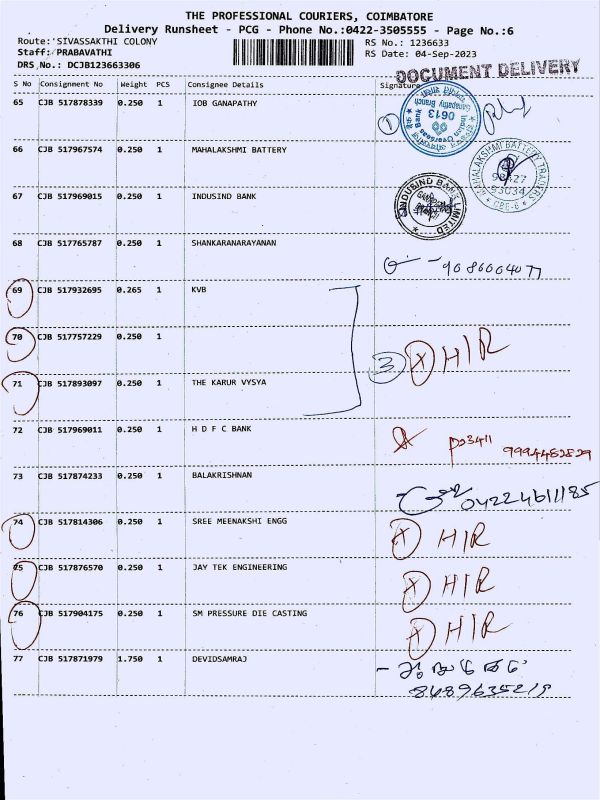 THE PROFESSIONAL COURIERS, COIMBATORE
Delivery Runsheet - PCG - Phone No.:0422-3505555 - Page No.:6
Route: SIVASSAKTHI COLONY RS No.: 1236633
Staff: PRABAVATHI RS Date: 04-Sep-2023
DRS No.: DCJB123663306
DOCUMENT DELIVERY
S No Consignment No Weight PCS Consignee Details Signature
65 CJB 517878339 0.250 1 IOB GANAPATHY
1 Indian Overseas Bank 0613 Ganapathy Branch
66 CJB 517967574 0.250 1 MAHALAKSHMI BATTERY
MAHALAKSHMI BATTERY TRADERS CBE-6
67 CJB 517969015 0.250 1 INDUSIND BANK
INDUSIND BANK LIMITED
68 CJB 517765787 0.250 1 SHANKARANARAYANAN
9086004077
69 CJB 517932695 0.265 1 KVB
70 CJB 517757229 0.250 1
3 X H/R
71 CJB 517893097 0.250 1 THE KARUR VYSYA
72 CJB 517969011 0.250 1 H D F C BANK
P23411 9994482829
73 CJB 517874233 0.250 1 BALAKRISHNAN
04224611185
74 CJB 517814306 0.250 1 SREE MEENAKSHI ENGG
X H/R
75 CJB 517876570 0.250 1 JAY TEK ENGINEERING
X H/R
76 CJB 517904175 0.250 1 SM PRESSURE DIE CASTING
X H/R
77 CJB 517871979 1.750 1 DEVIDSAMRAJ
8489635219